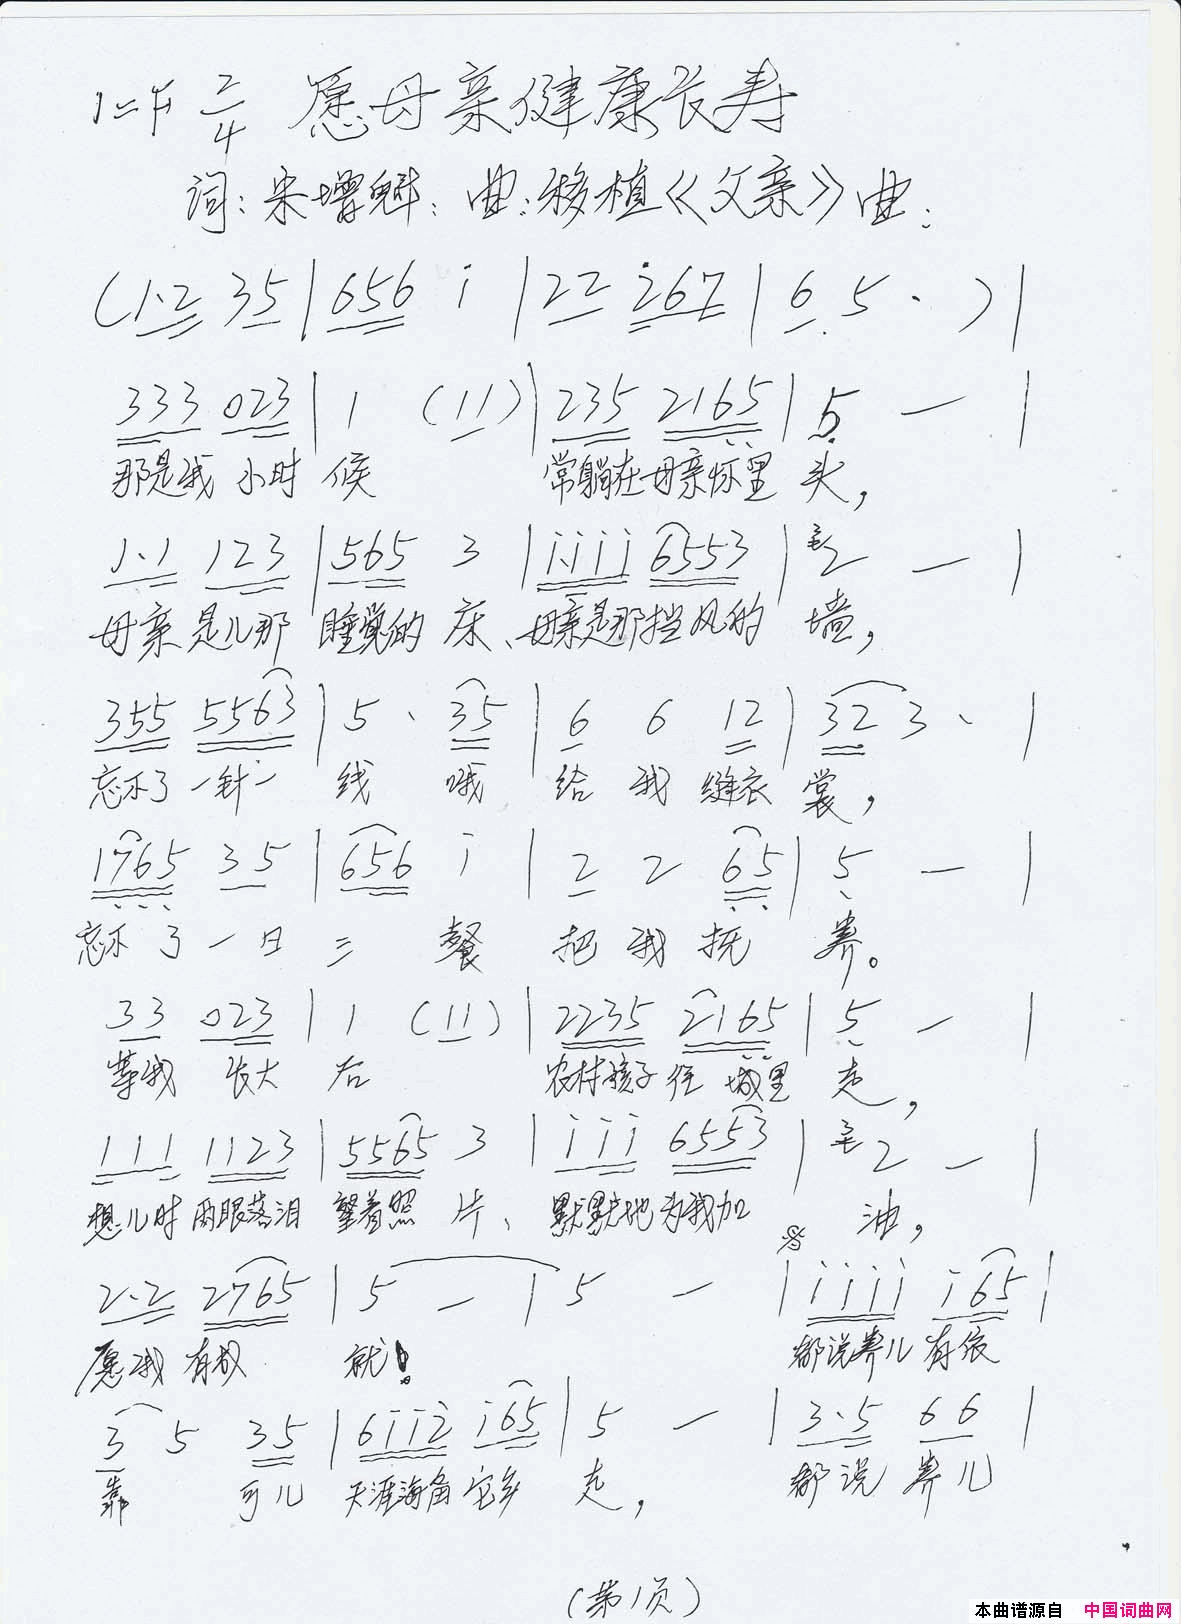 1=F 2/4 愿母亲健康长寿
词:宋增魁: 曲:移植《父亲》曲:
(1·2 35|656 i|22 i67|6 5 · )|
333 023|1 (11)|235 2165|5 — |
那是我 小时 候 常躺在母亲怀里 头,
1·1 123|565 3|iiii 6553|3 2 — |
母亲 是儿那 睡觉的 床、母亲是那挡风的 墙,
355 5563|5 · 35|6 6 12|32 3 · |
忘不了 一针一 线 哦 给 我 缝衣 裳,
1765 35|656 i|2 2 65|5 — |
忘不 了 一 日 三 餐 把 我 抚 养。
33 023|1 (11)|2235 2165|5 — |
等我 长大 后 农村孩子 往 城里 走,
111 1123|5565 3|iii 6553|3 2 — |
想儿时 两眼落泪 望着照 片、 默默地 为我加 油,
2·2 2765|5 — |5 — |iiii i65|
愿我 有成 就! 都说养儿 有依
3 5 35|6ii2 i65|5 — |3·5 66|
靠 可儿 天涯海角 它乡 走, 都说 养儿
(第1页)
本曲谱源自 中国词曲网